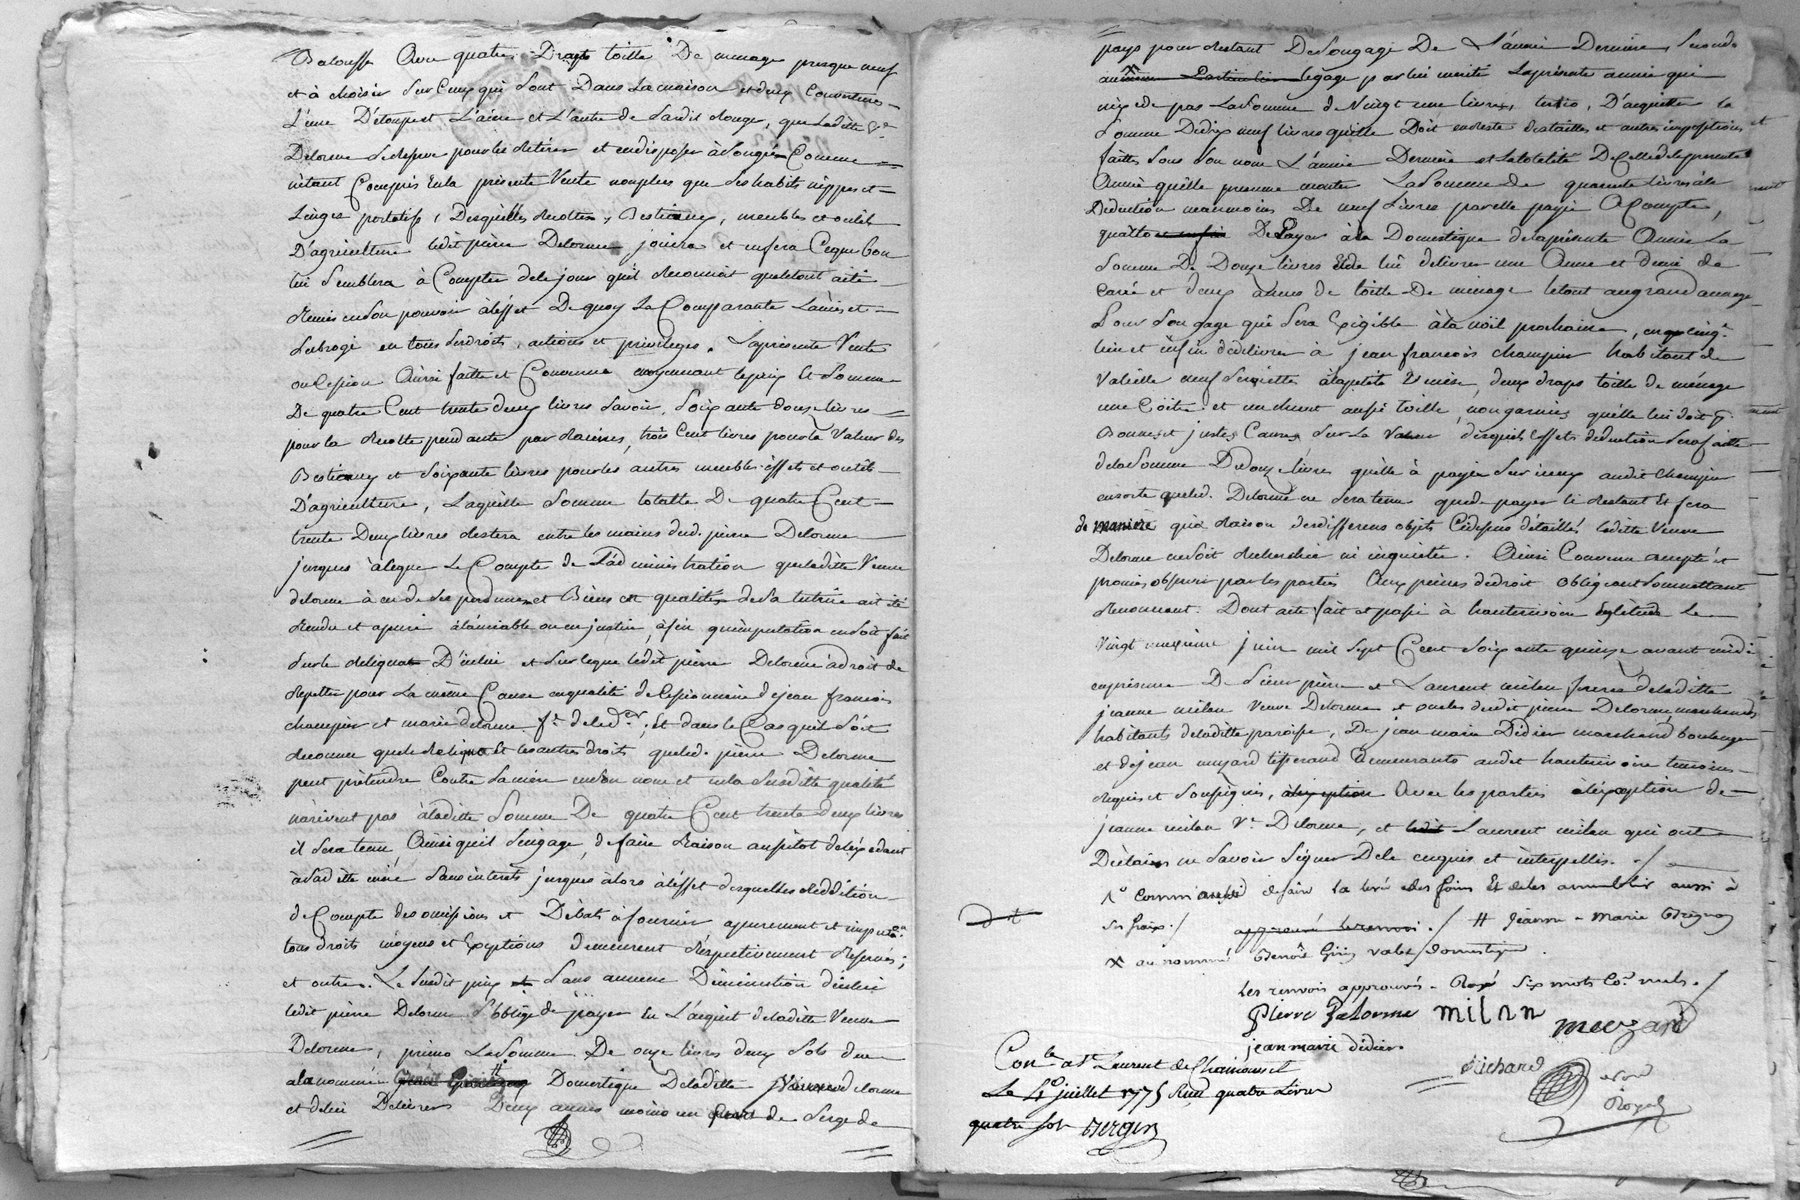 Balouffe Avec quatre Draps toille De menage presque neuf
et à choisir sur Ceux qui sont Dans La maison et deux Couvertures
L'une D'étoupe et Laine et L'autre de Cardis Rouge, que Laditte Ve
Delorme se Reserve pour les Retirer et en disposer à son gré Comme
n'étant Compris En la présente Vente non plus que ses habits nippes et
Linges portatifs, Desquelles Recoltes, Bestiaux, meubles et outils
D'agriculture ledit pierre Delorme jouira et usera Ceque bon
lui semblera à Compter de ce jour qu'il Reconnoit que le tout a été
Remis en son pouvoir à l'effet De quoy La Comparante L'a mis et
subrogé en tous ses droits, actions et privileges. La présente Vente
ou Cession Ainsi faitte et Convenue moyennant le prix Et Somme
De quatre Cent trente deux livres Savoir, Soixante douze livres
pour la Recolte pendante par Racines, trois Cent livres pour la Valeur des
Bestiaux et soixante livres pour les autres meubles effets et outils
D'agriculture, Laquelle Somme totalle De quatre Cent
trente Deux livres Restera entre les mains dud. pierre Delorme
jusques à ceque Le Compte de L'administration que laditte Veuve
delorme a eu de ses personnes et Biens en qualité de sa tutrice ait été
Rendu et apuré à l'amiable ou en justice, afin qu'imputation en soit fait
sur le reliquat D'icelui et sur ceque ledit pierre Delorme a droit de
Repetter pour La même Cause en qualité de Cessionnaire de jean françois
champier et marie delorme fe. deled.er, Et dans le Cas qu'il soit
Reconnu que le Reliquat Et les autres droits queled. pierre Delorme
peut prétendre Contre sa mère en son nom et en la susditte qualité
n'arrivent pas à laditte Somme De quatre Cent trente Deux livres
il sera tenu Ainsi qu'il s'engage, de faire Raison aussitôt de l'éxcedant
à sad itte mère sans interets jusques alors à l'effet desquelles Reddition
de Compte des omissions et Débats à fournir apurement et imputaon
tous droits moyens et Exceptions demeurent Respectivement Reservés;
et outre. Le susdit prix et sans aucune Diminution d'icelui
ledit pierre Delorme s'obblige de payer En L'acquit de laditte Veuve
Delorme, primo La somme De onze livres deux sols due
a la nommée Domestique De laditte Veuve delorme
et de lui Delivrer Deux aunes moins un quart de Serge de
pays pour Restant De son gage De L'année Derniere, secundo
au legage par lui merité La présente année qui
n'excede pas La somme de Vingt une livres, tertio, D'acquitter la
somme De dix neuf livres qu'elle Doit en reste des tailles et autres impositions
faittes sous son nom L'année Derniere et La totalité De Celles de la presente
Année qu'elle presume monter La somme de quarente livres à la
Deduction neanmoins De neuf livres par elle payé A Compte,
quarto De Payer à la Domestique de la présente Année La
somme De Douze livres Et de lui delivrer une Aune et demi de
carré et deux aunes de toille De menage le tout au grand aunage
Pour son gage qui sera Exigible à la noël prochaine, en cinq.
lieu et enfin de délivrer à jean françois champier habitant de
Valeille neuf serviettes à la petite Venise, deux draps toille de ménage
une Coëtte et un chevet aussi toille, non garnies qu'elle lui doit p.
Bonnes et justes Causes sur La Valeur desquels effets deduction sera faitte
de la somme De douze livres qu'elle a payée sur iceux audit champier
en sorte queled. Delorme ne sera tenu que de payer le Restant Et fera
de maniere qu'a Raison des differens objets Cidessus détaillés laditte Veuve
Delorme ne soit Recherchée ni inquietée. Ainsi Convenu accepté et
promis observer par les parties Aux peines de droit obligeant soumettant
Renonçant. Dont acte fait et passé à hauterivoire Le
Vingt juin mil sept Cent soixante quinze avant midi
en présence De sieur pierre et Laurent milan freres de laditte
jeanne milan Veuve Delorme et oncles dudit pierre Delorme, marchands
habitants de laditte paroisse, De jean marie Didier marchand boulanger
et de jean muzard tisserand Demeurants audit hauterivoire temoins
Requis et soussignés, à l'exception Avec les parties à l'exception de
jeanne milan Ve. Delorme, et ledit Laurent milan qui ont
Déclarés ne savoir signer De ce enquis et interpellés. /
1° comm de faire la levé des foins Et de les annublir aussi à
ses fraix / approuvé le renvoi / # Jeanne - Marie
× au nommé Benoît valet domestique
Les renvois approuvés - Rayé six mots Co. nuls. /
Pierre Delorme milan muzard
jean marie didier
Richard
Con.lé à St Laurent de Chamousset
Le 4 juillet 1775 Reçu quatre Livres
quatre sols